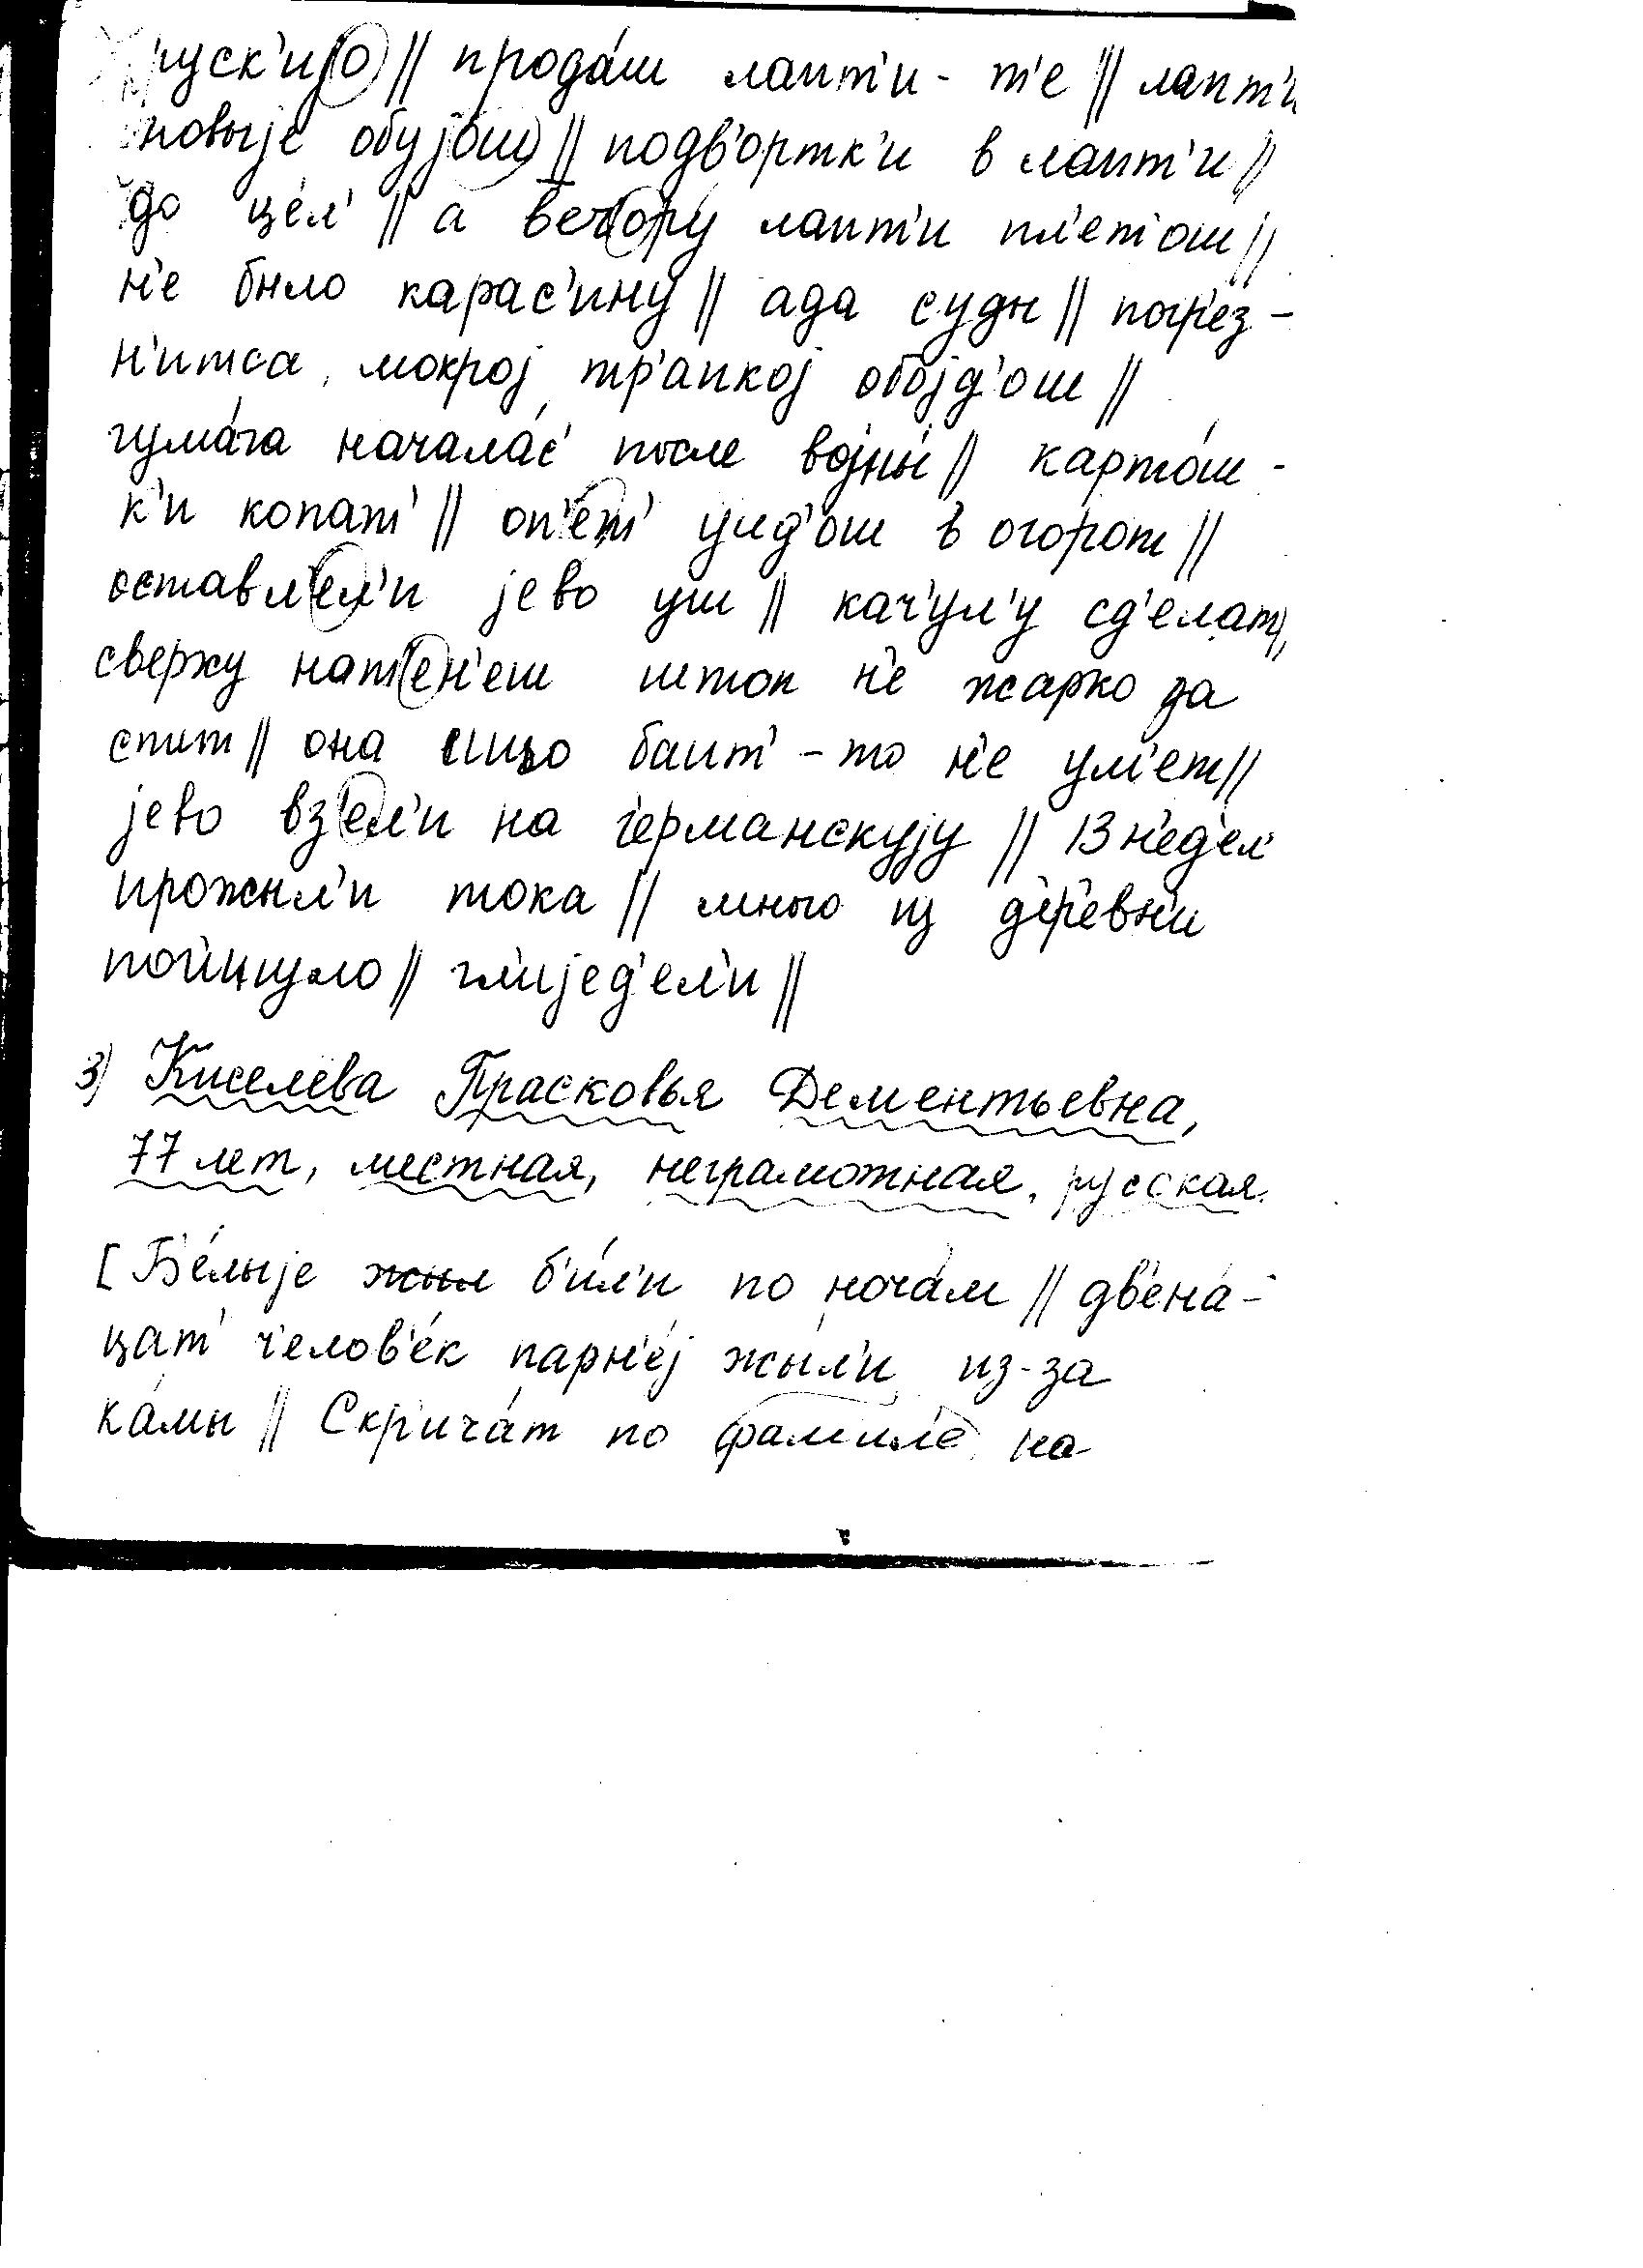 руск'ијо || прода́ш лапт'и - т'е || лапт'и
новыје обујош || подв'ортк'и в лапт'и ||
до це́л' || а вечору лапт'и пл'ет'ош ||
н'е было карас'ину || ада суды || погр'ез -
н'итса мокрој тр'апкој обојд'ош ||
гума́га начала́с' после војны́ || карто́ш -
к'и копат' || оп'ет' уид'ош в огорот ||
оставл'ел'и јево уш || кач'ул'у сд'елат,
сверху нат'ен'еш штоп н'е жарко да
спит || она ишшо баит' - то н'е ум'ет ||
јево вз'ел'и на германскују || 13 н'ед'ел'
прожыл'и тока || много из д'ер'евн'и
погинуло || гл'ијед'ел'и ||
3) Киселева Прасковья Дементьевна,
77 лет, местная, неграмотная, русская.
[ Б'е́лыје жыл б'и́л'и по ноча́м || дв'ена́ -
цат' ч'елов'е́к парн'е́ј жы́л'и из-за
ка́мы || Скр'ича́т по фам'ил'е на